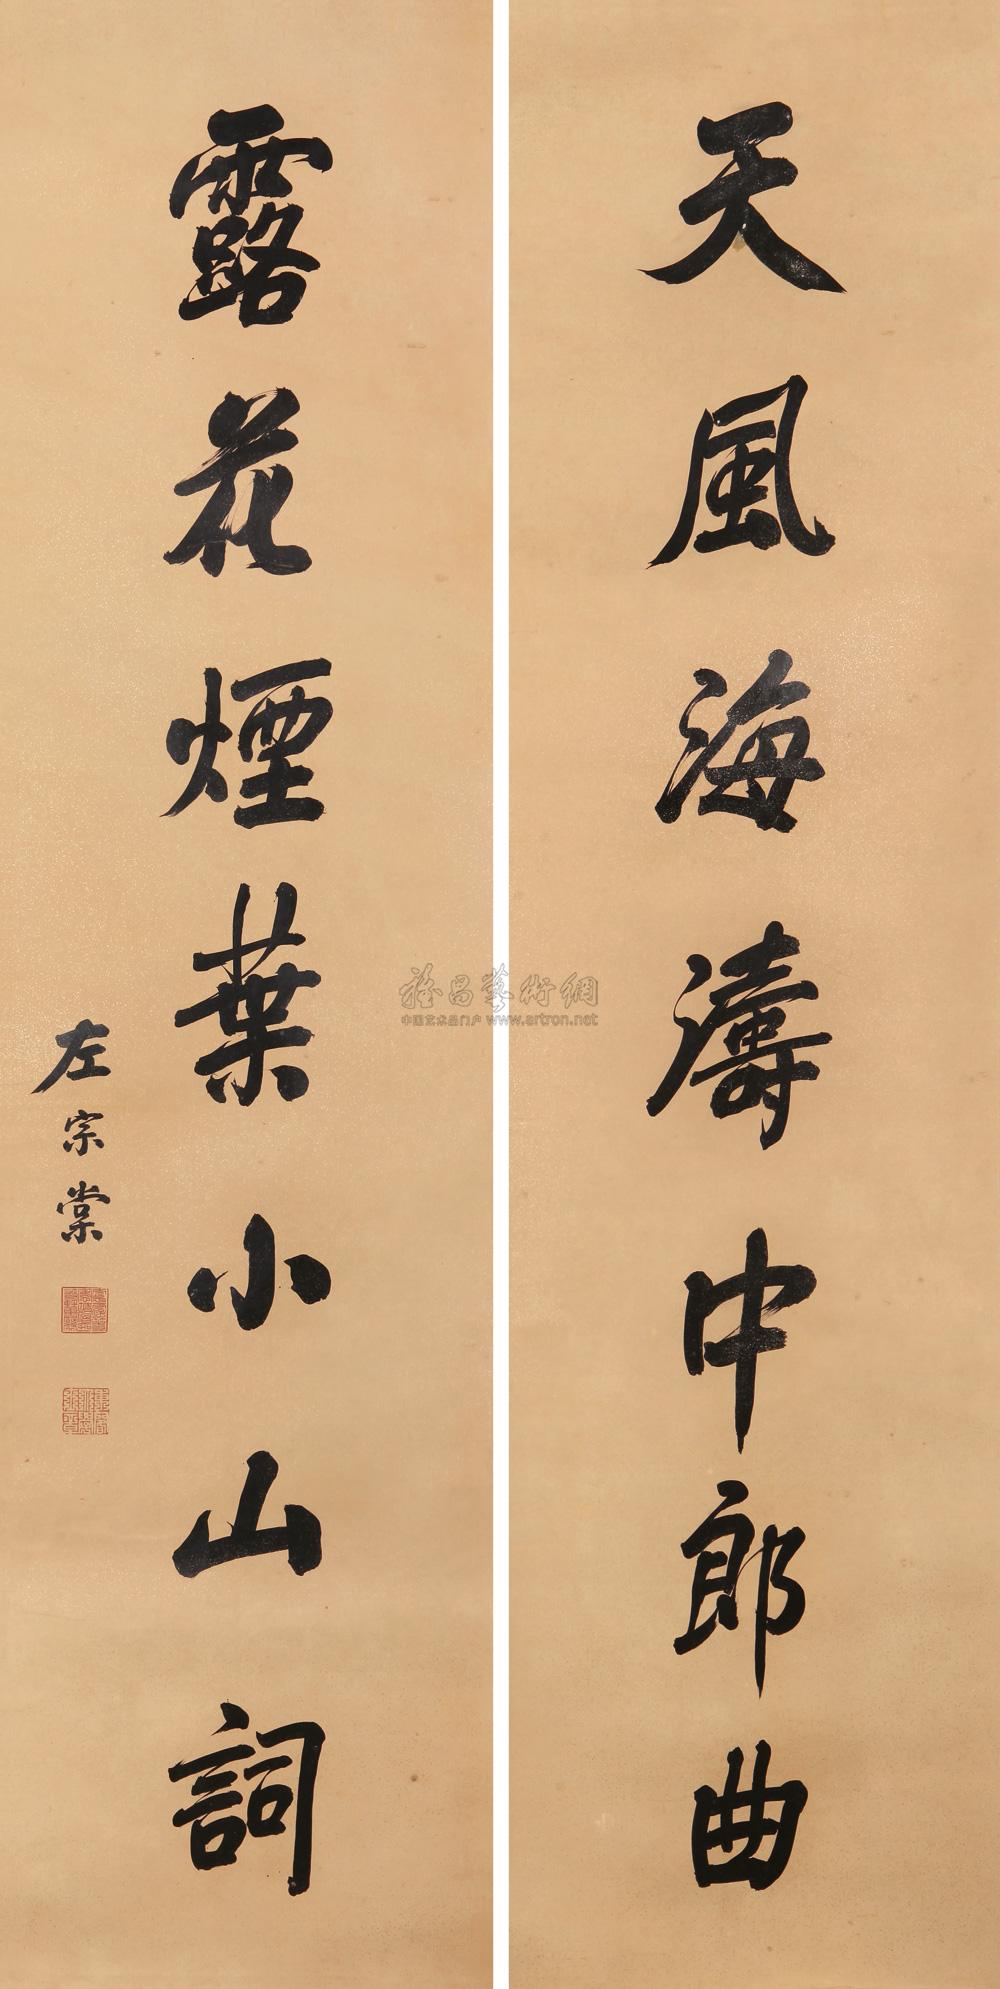 天風海濤中郎曲
露花煙葉小山詞
左宗棠
雅昌藝術網
中国艺术品门户 www.artron.net